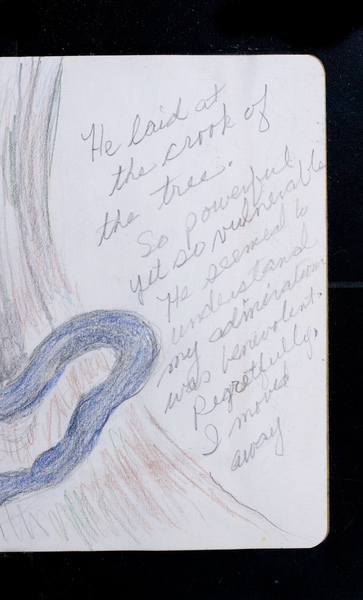 He laid at
the crook of
the tree.
So powerful
yet so vulnerable
He seemed to
understand
my admiration
was benevolent.
Regretfully,
I moved
away